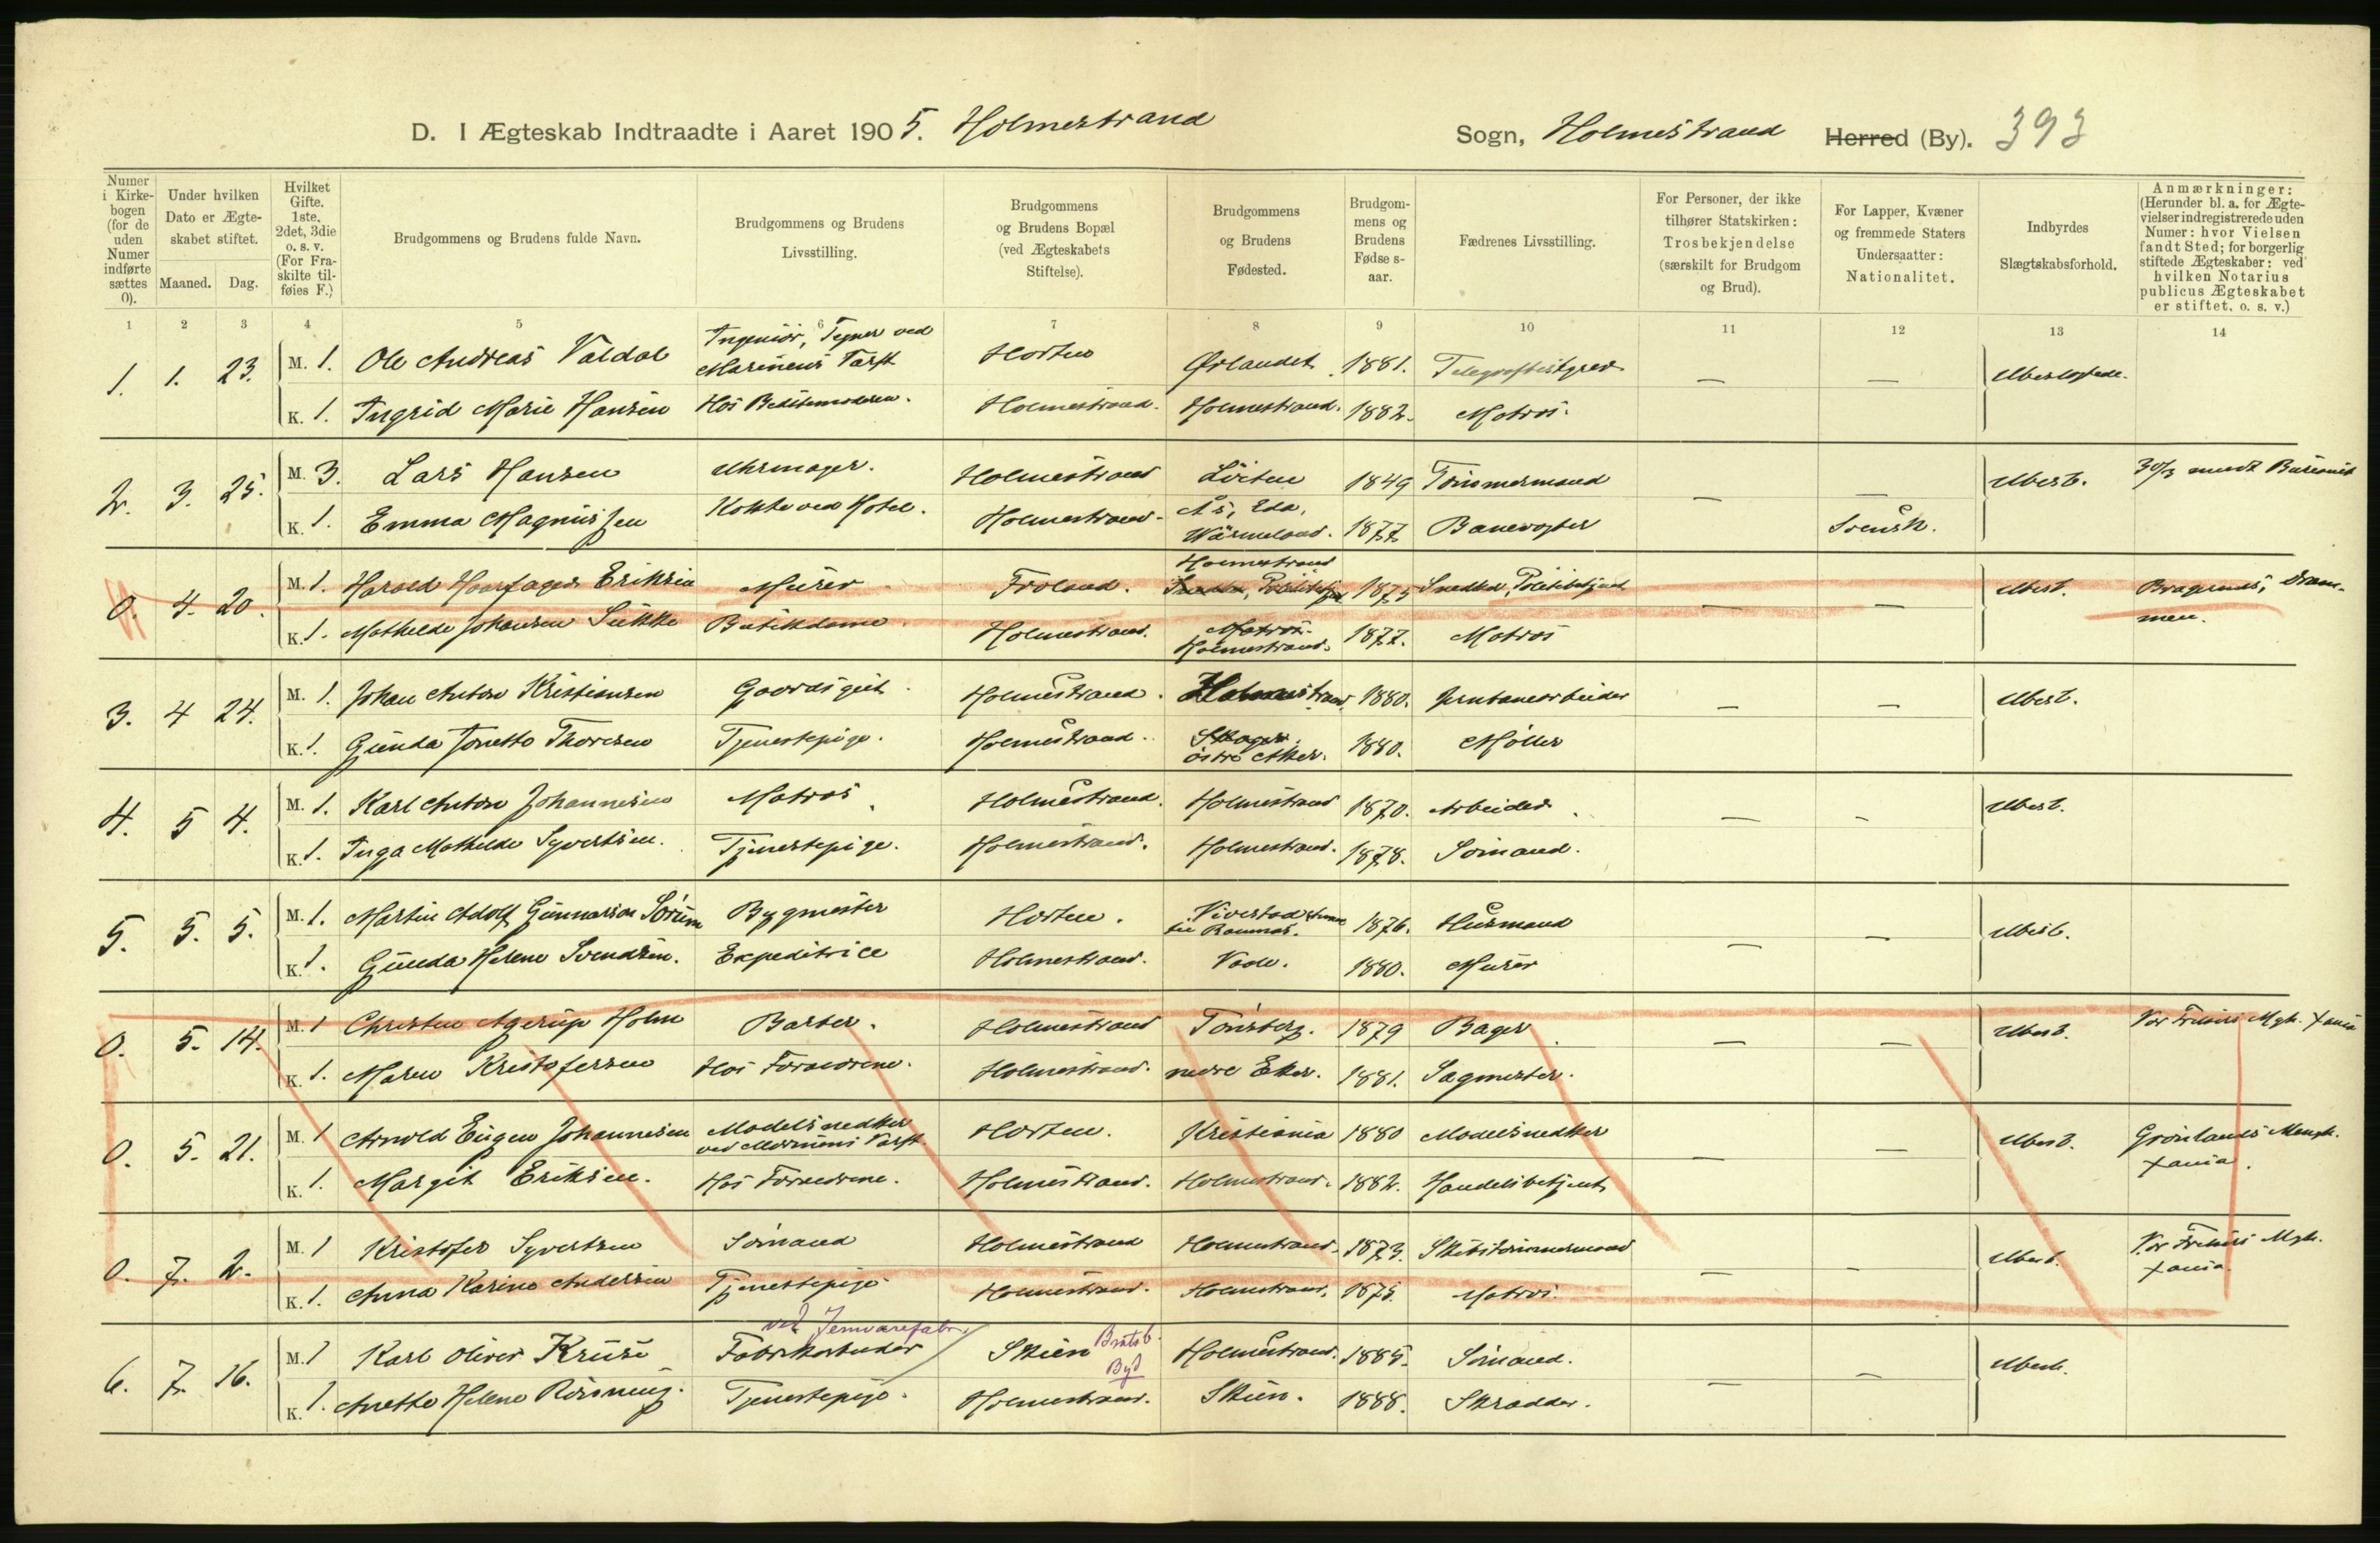 D. I Ægteskab Indtraadte i Aaret 1905. Holmestrand Sogn, Holmestrand Herred (By). 393
Numer i Kirkebogen (for de uden Numer indførte sættes 0).
Under hvilken Dato er Ægteskabet stiftet.
Maaned. Dag.
Hvilket Gifte. 1ste, 2det, 3die o. s. v. (For Fraskilte tilføies F.)
Brudgommens og Brudens fulde Navn.
Brudgommens og Brudens Livsstilling.
Brudgommens og Brudens Bopæl (ved Ægteskabets Stiftelse).
Brudgommens og Brudens Fødested.
Brudgommens og Brudens Fødse s-aar.
Fædrenes Livsstilling.
For Personer, der ikke tilhører Statskirken: Trosbekjendelse (særskilt for Brudgom og Brud).
For Lapper, Kvæner og fremmede Staters Undersaatter: Nationalitet.
Indbyrdes Slægtskabsforhold.
Anmærkninger: (Herunder bl. a. for Ægtevielser indregistrerede uden Numer: hvor Vielsen fandt Sted; for borgerlig stiftede Ægteskaber: ved hvilken Notarius publicus Ægteskabet er stiftet, o. s. v.)
1 2 3 4 5 6 7 8 9 10 11 12 13 14
1. 1. 23. M. 1. Ole Andreas Valdal Ingeniör, Tegner ved Marinens Værft Horten Ørlandet 1881. — — Ubeslægtede.
K. 1. Ingrid Marie Hansen Hos Bedstemoderen. Holmestrand. Holmestrand. 1882. Matros.
2. 3. 25. M. 3. Lars Hansen Uhrmager. Holmestrand Löiten 1849 Tömmermand — — Ubesl. 30/3
K. 1. Emma Magnussen Kokke ved Hotel. Holmestrand. Ås, Eda, Wärmeland. 1877 Banevogter Svensk.
0. 4. 20. M. 1. Harald Haarfager Eriksen Murer Froland. Holmestrand 1875 Snedker, Politibetjent — — Ubesl. Bragernes, Drammen.
K. 1. Mathilde Johansen Sükke Butikdame. Holmestrand. Matros. Holmestrand. 1877. Matros
3. 4 24. M. 1. Johan Anton Kristiansen Gaardsgut. Holmestrand. Holmestrand. 1880. Jernbanearbeider — — Ubesl.
K. 1. Gunda Jonette Thoresen Tjenestepige. Holmestrand. Skoger. östre Aker. 1880. Möller
4. 5 4. M. 1. Karl Anton Johannesen Matros. Holmestrand. Holmestrand 1870. Arbeider. — — Ubesl.
K. 1. Inga Mathilde Syvertsen. Tjenestepige. Holmestrand. Holmestrand. 1878. Sömand.
5. 5. 5. M. 1. Martin Adolf Gunnarson Sörum Bygmester Horten. 1876. Husmand — — Ubesl.
K. 1. Gunda Helene Svendsen. Expeditrice Holmestrand. Vaale. 1880. Murer
0. 5. 14. M. 1 Christen Agerup Holm Barber. Holmestrand Tönsberg. 1879 Bager. — — Ubesl. Vor Frelsers Mgh. Xania
K. 1. Maren Kristofersen Hos Forældrene. Holmestrand. nedre Eker. 1881. Sagmester.
0. 5. 21. M. 1 Arnold Eugen Johannesen Modelsnedker ved Marinens Værft. Horten. Kristiania 1880 Modelsnedker — — Ubesl. Grönlands Menigh. Xania.
K. 1. Margit Eriksen. Hos Forældrene. Holmestrand. Holmestrand. 1882. Handelsbetjent
0. 7. 2. M. 1 Kristofer Syvertsen Sömand Holmestrand Holmestrand. 1873. Skibstömmermand — — Ubesl. Vor Frelsers Mgh. Xania.
K. 1. Anna Karine Andersen Tjenestepige Holmestrand. Holmestrand. 1875. Matros.
6. 7. 16. M. 1 Karl Oliver Kruse Fabrikarbeider ved Jernvarefabr. Skien Bratsb. Byd Holmestrand. 1885. Sömand. — — Ubesl.
K. 1. Anette Helene Rösning. Tjenestepige. Holmestrand. Skien. 1888. Skrædder.